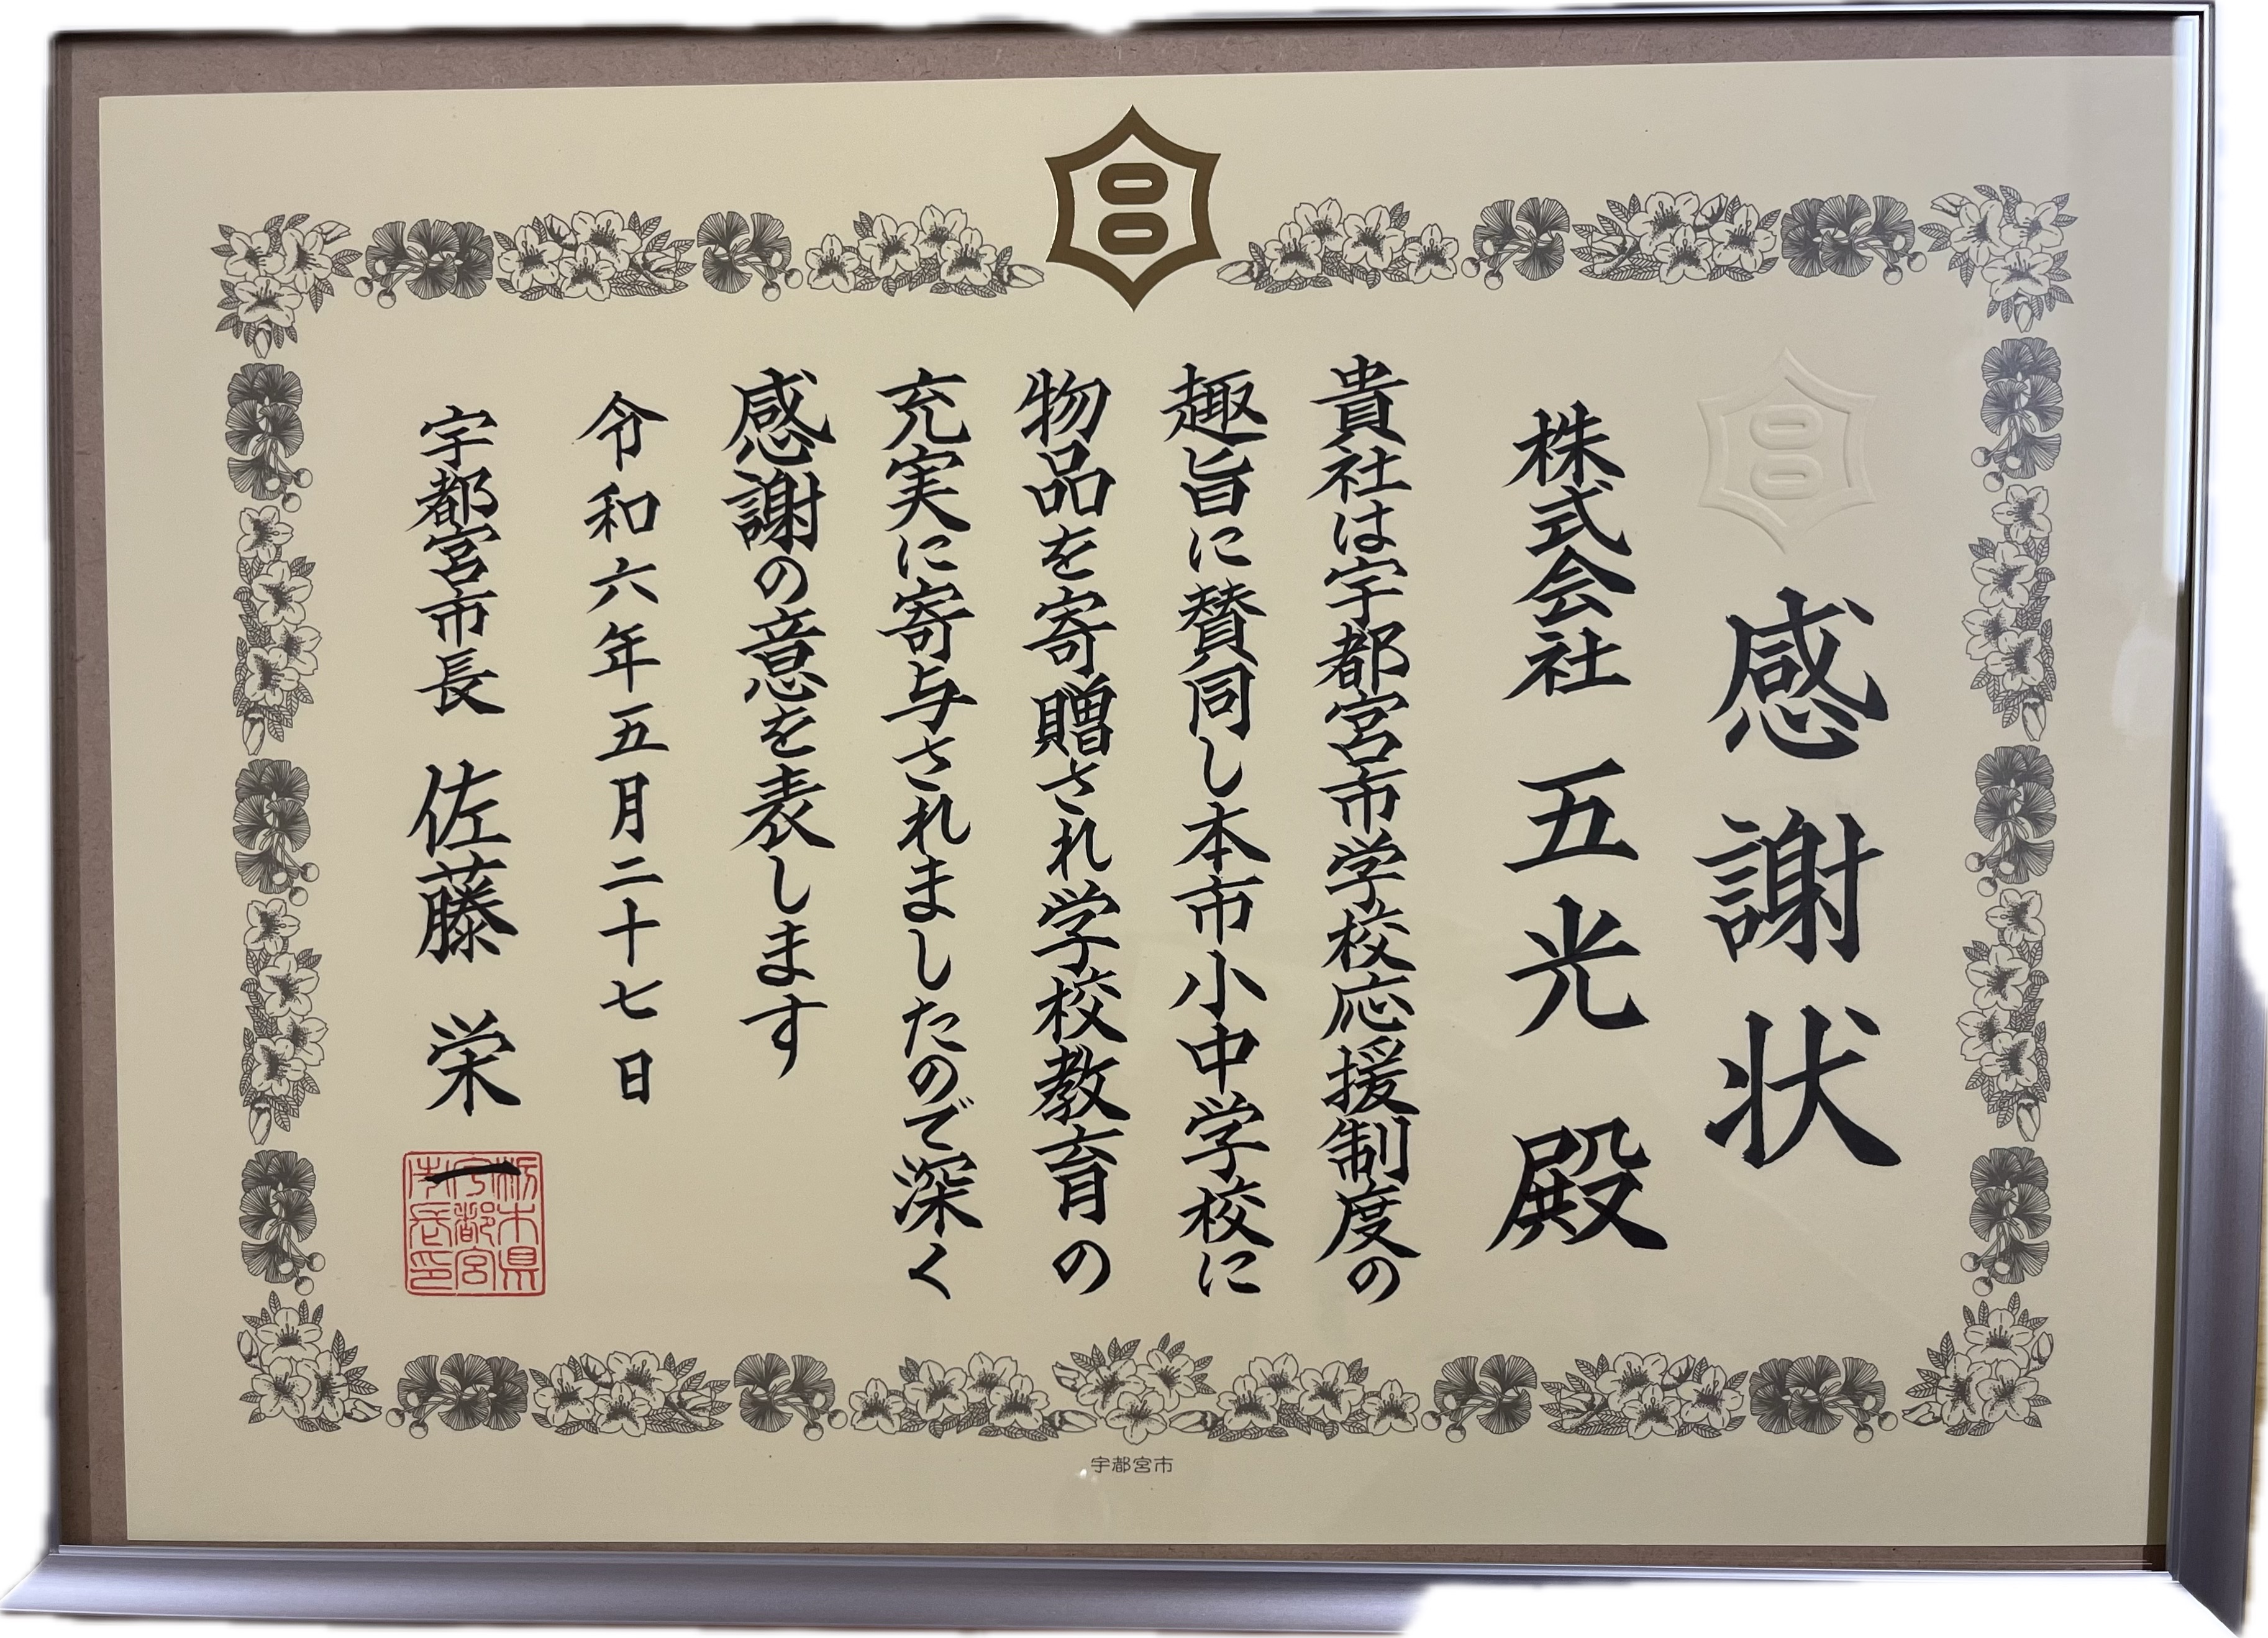 感謝状
株式会社 五光 殿
貴社は宇都宮市学校応援制度の
趣旨に賛同し本市小中学校に
物品を寄贈され学校教育の
充実に寄与されましたので深く
感謝の意を表します
令和六年五月二十七日
宇都宮市長 佐藤 栄一
栃木県
宇都宮
市長印
宇都宮市